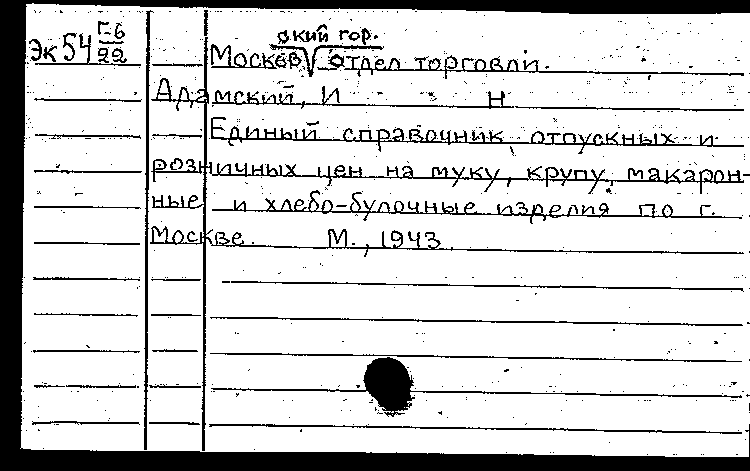 Эк 54 Г-6/22
ский гор.
Москов отдел торговли.
Адамский, И Н
Единый справочник отпускных и
розничных цен на муку, крупу, макарон-
ные и хлебо-булочные изделия по г.
Москве. М., 1943.